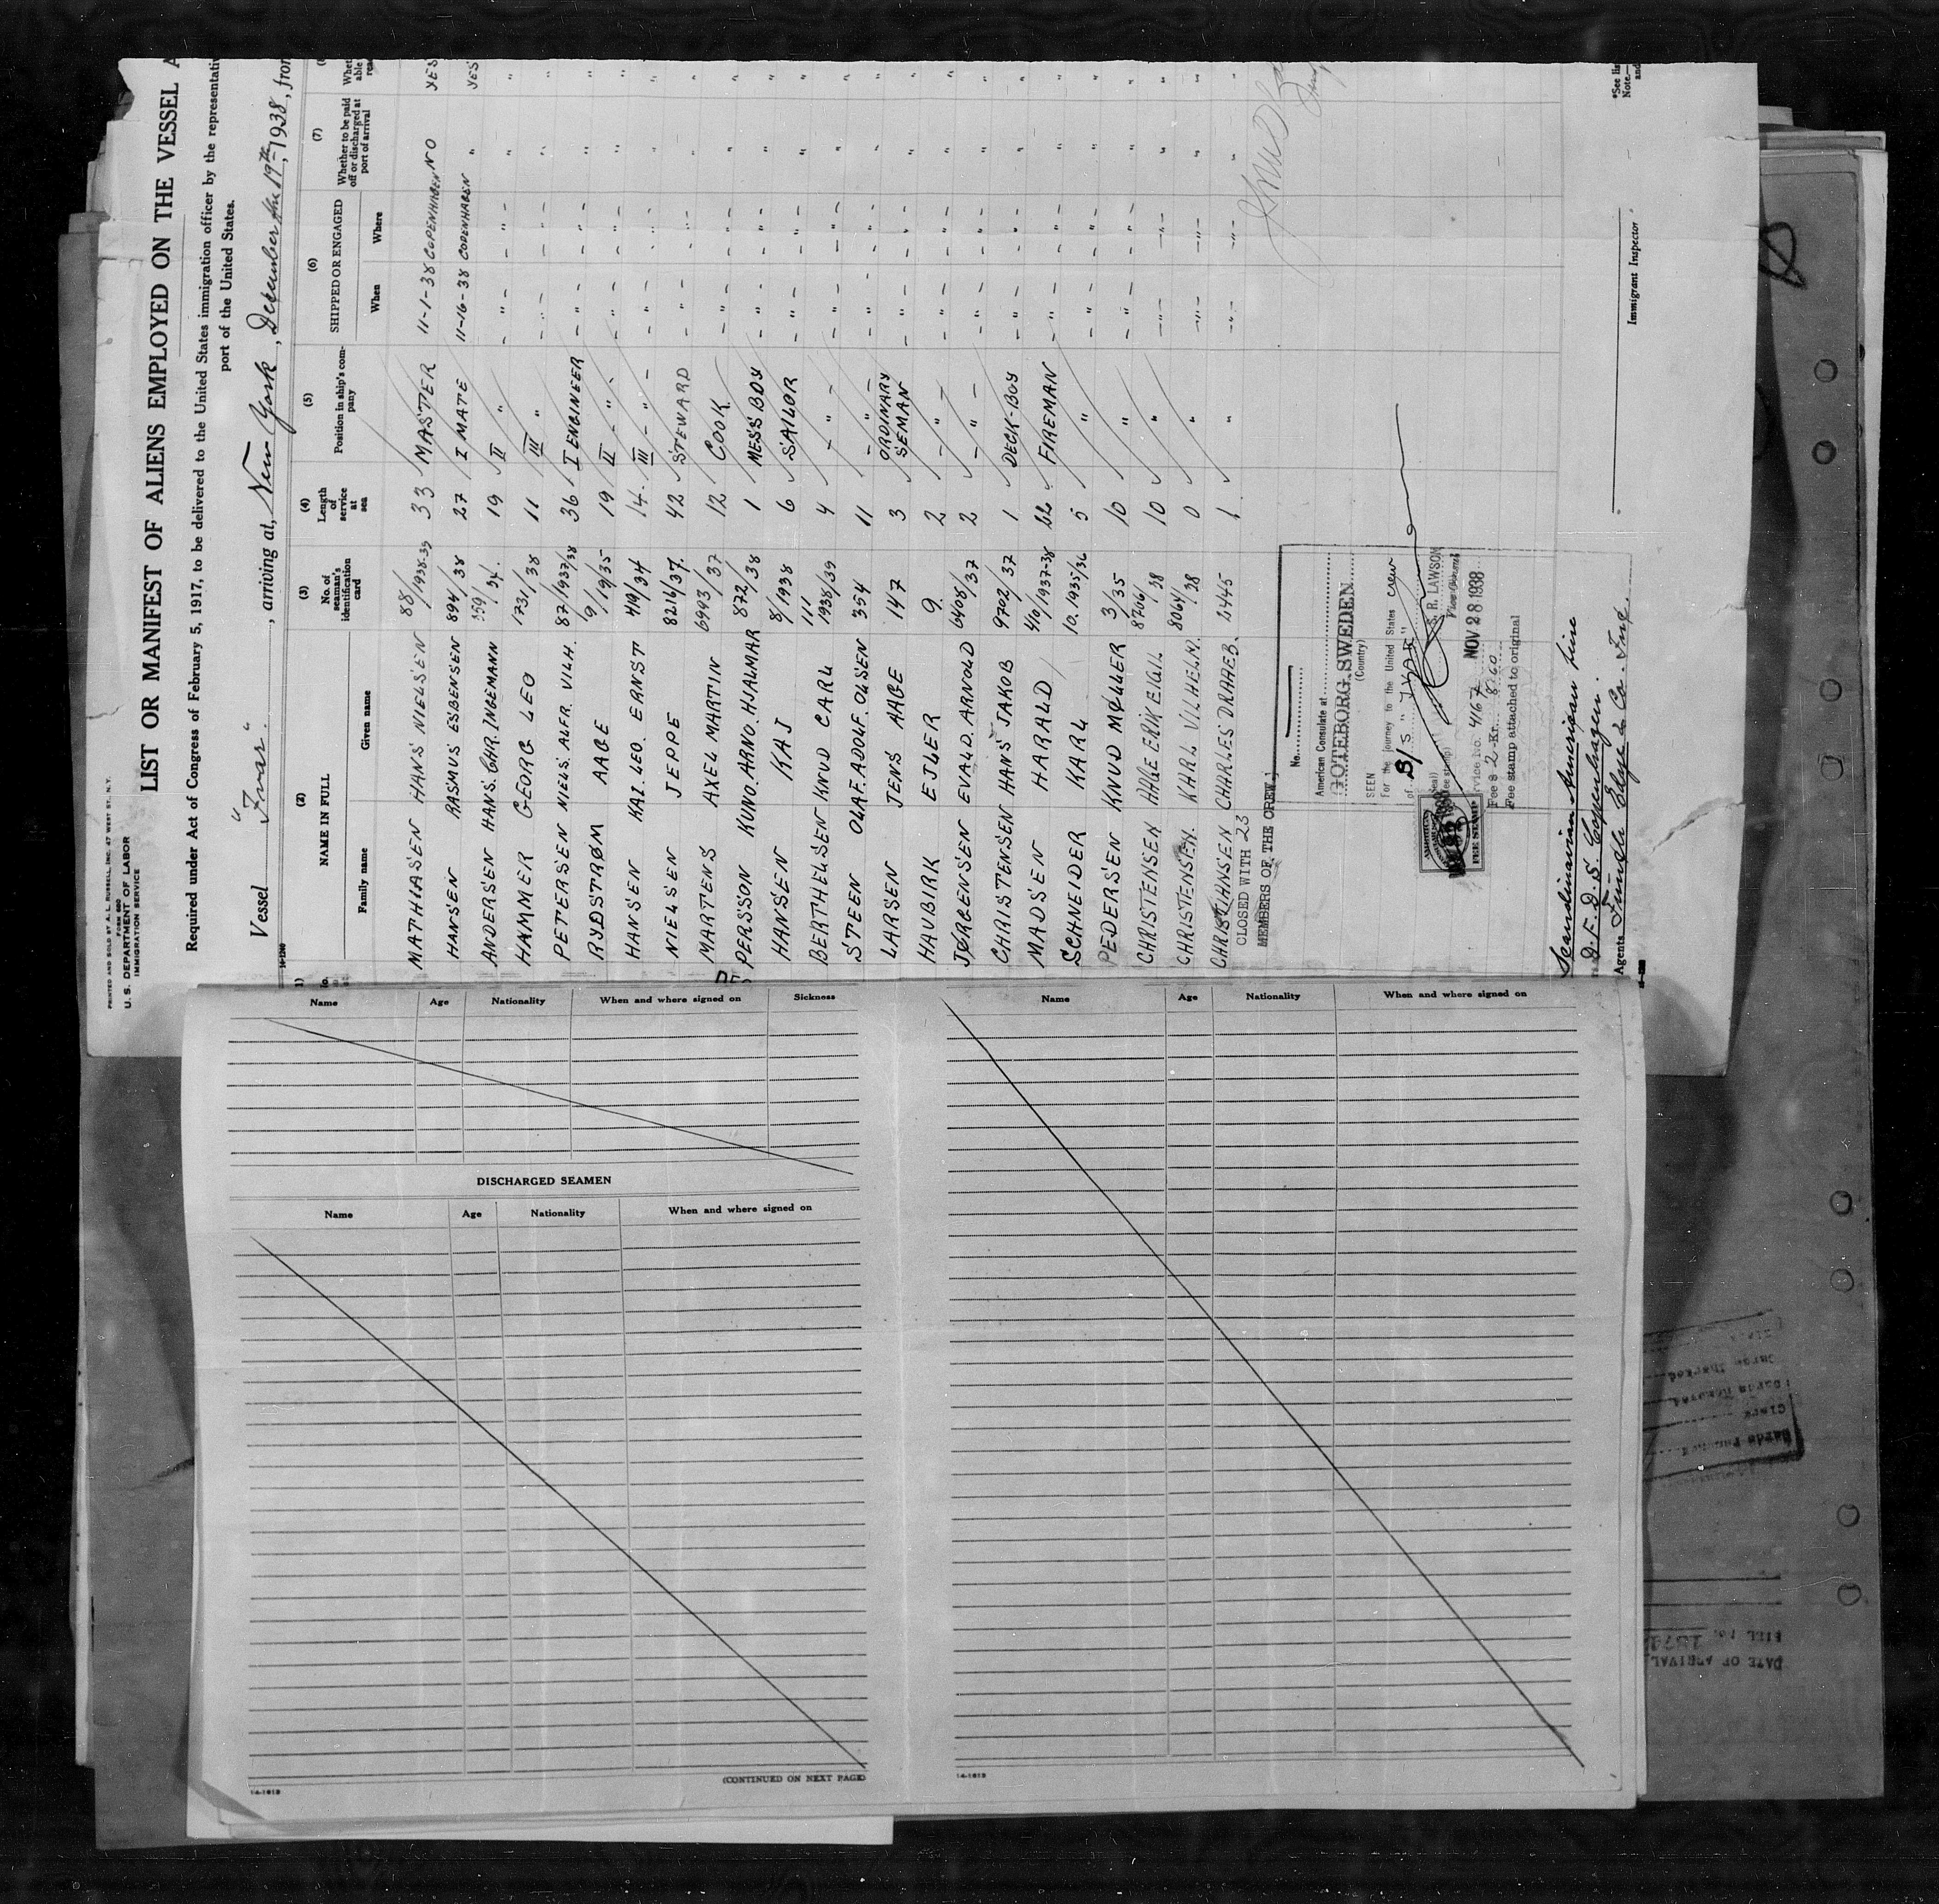 PRINTED AND SOLD BY A. L. RUSSELL, INC. 47 WEST ST., N.Y.
FORM 680
U. S. DEPARTMENT OF LABOR
IMMIGRATION SERVICE
LIST OR MANIFEST OF ALIENS EMPLOYED ON THE VESSEL A
Required under Act of Congress of February 5, 1917, to be delivered to the United States immigration officer by the representativ
port of the United States.
Vessel "Ivar", arriving at, New York, December the 19th, 1938, from
(2) NAME IN FULL (3) No. of seaman's identification card (4) Length of service at sea (5) Position in ship's company (6) SHIPPED OR ENGAGED (7) Whether to be paid off or discharged at port of arrival
Family name Given name When Where
MATHIASEN HANS NIELSEN 88/1938-39 33 MASTER 11-1-38 COPENHAGEN NO YES
HANSEN RASMUS ESBENSEN 894/38 27 I MATE 11-16-38 COPENHAGEN " YES
ANDERSEN HANS. CHR. INGEMANN 19 II " - " - - " - " "
HAMMER GEORG LEO 1731/38 11 III " - " - - " - " "
PETERSEN NIELS. ALFR. VILH. 87/1937/38 36 I ENGINEER - " - - " - " "
RYDSTRØM AAGE 9/19/35 19 II - " - - " - - " - " "
HANSEN KAI. LEO. ERNST 419/34 14. III - " - - " - - " - " "
NIELSEN JEPPE 8216/37. 42 STEWARD - " - - " - " "
MARTENS AXEL MARTIN 6993/37 12 COOK - " - - " - " "
PERSSON KUNO. ARNO. HJALMAR 872/38 1 MESS BOY - " - - " - " "
HANSEN KAJ 8/1938 6 SAILOR - " - - " - " "
BERTHELSEN KNUD CARL 11 1938/39 4 - " - - " - - " - " "
STEEN OLAF. ADOLF. OLSEN 354 11 - " - - " - - " - " "
LARSEN JENS AAGE 147 3 ORDINARY SEMAN - " - - " - " "
HAUBIRK EJLER 9. 2 - " - - " - - " - " "
JØRGENSEN EVALD. ARNOLD 6408/37 2 - " - - " - - " - " "
CHRISTENSEN HANS JAKOB 9702/37 1 DECK-BOY - " - - " - " "
MADSEN HARALD 410/1937-38 22 FIREMAN - " - - " - " "
SCHNEIDER KARL 10. 1935/36 5 " - " - - " - " "
PEDERSEN KNUD MØLLER 3/35 10 " - " - - " - " "
CHRISTENSEN AAGE ERIK EIGIL 8706/38 10 " - " - - " - " "
CHRISTENSEN. KARL VILHELM. 8064/38 0 " - " - - " - " "
CHRISTIANSEN CHARLES DRAHEB. 2445 1 " - " - - " - "
CLOSED WITH 23
MEMBERS OF THE CREW.
No.
American Consulate at
GOTEBORG, SWEDEN
(Country)
SEEN
For the journey to the United States crew
of S/S "IVAR"
R. LAWSON
Vice Consul
Service No. 4167 NOV 28 1938
Fee $ 2 - Kr. 8.60
Fee stamp attached to original
AMERICAN
FEE STAMP
Scandinavian American Line
D. F. D. S. Copenhagen.
Agents Funch Edye & Co. Inc.
Immigrant Inspector
*See lis
Note.—
and
Name Age Nationality When and where signed on Sickness
DISCHARGED SEAMEN
Name Age Nationality When and where signed on
(CONTINUED ON NEXT PAGE)
14-1613
Name Age Nationality When and where signed on
14-1613
DATE OF ARRIVAL